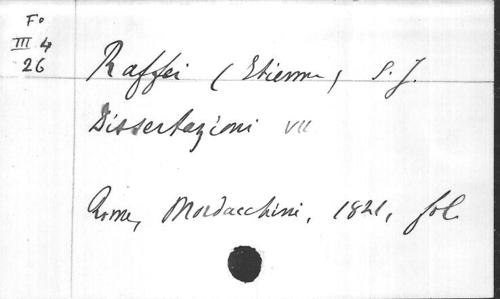 Fº
III 4
26
Raffei (Etienne) S. J.
Dissertazioni VII
Rome, Mordacchini, 1821, fol.